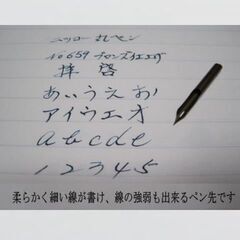 ニッコー 丸ペン
No659 ブロンズイエロー
拝啓
あいうえお
アイウエオ
abcde
12345
柔らかく細い線が書け、線の強弱も出来るペン先です